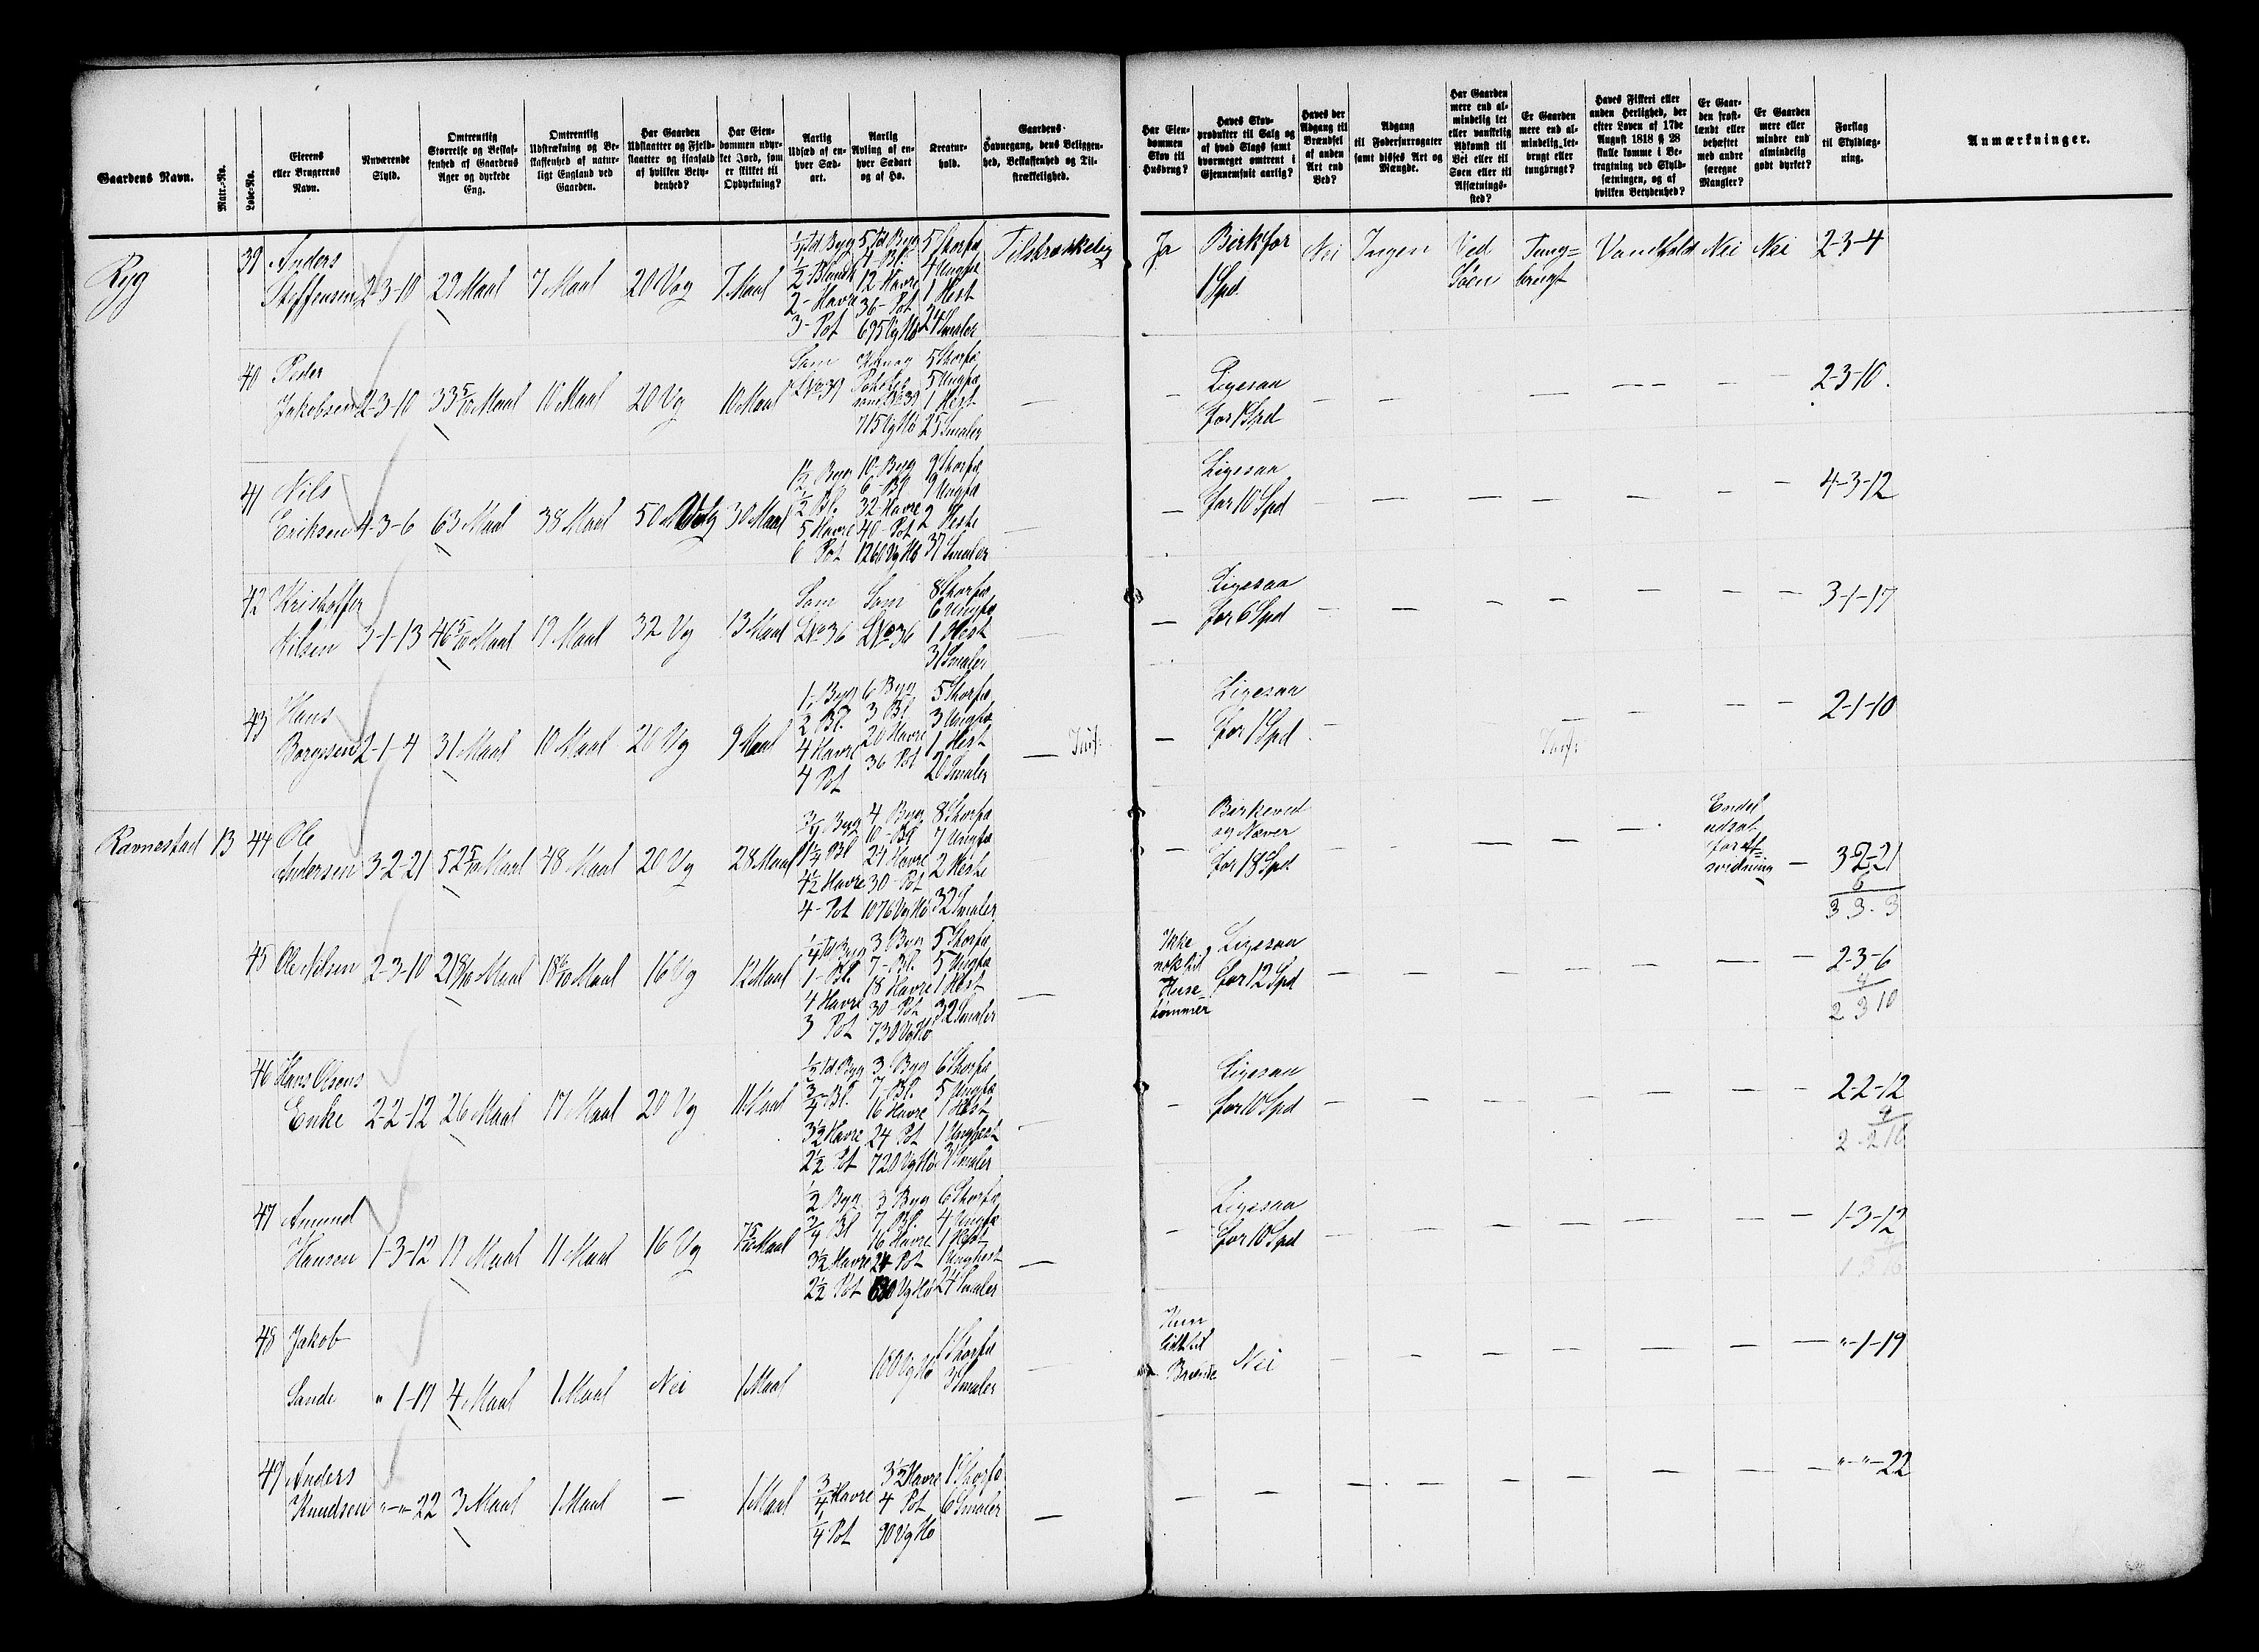 Gaardens Navn.
Matr.-No.
Løbe-No.
Eierens eller Brugerens Navn.
Nuværende Skyld.
Omtrentlig Størrelse og Beskaffenhed af Gaardens Ager og dyrkede Eng.
Omtrentlig Udstrækning og Beskaffenhed af naturligt England ved Gaarden.
Har Gaarden Udslaatter og Fjeldslaatter og isaafald af hvilken Betydenhed?
Har Eiendommen udyrket Jord, som er skikket til Opdyrkning?
Aarlig Udsæd af enhver Sædart.
Aarlig Avling af enhver Sædart og af Hø.
Kreaturhold.
Gaardens Havnegang, dens Beliggenhed, Beskaffenhed og Tilstrækkelighed.
Har Eiendommen Skov til Husbrug?
Haves Skovprodukter til Salg og af hvad Slags samt hvormeget omtrent i Gjennemsnit aarlig?
Haves der Adgang til Brændsel af anden Art end Ved?
Adgang til Fødersurrogater samt disses Art og Mængde.
Har Gaarden mere end almindelig let eller vanskelig Adkomst til Vei eller til Søen eller til Afsætningssted?
Er Gaarden mere end almindelig letbrugt eller tungbrugt?
Haves Fiskeri eller anden Herlighed, der efter Loven af 17de August 1818 § 28 skulle komme i Betragtning ved Skyldsætningen, og af hvilken Betydenhed?
Er Gaarden frostlændt eller behæftet med andre særegne Mangler?
Er Gaarden mere eller mindre end almindelig godt dyrket?
Forslag til Skyldlægning.
Anmærkninger.
Ryg
39 Anders Steffensen 2-3-10 29 Maal 7 Maal 20 Vog 7 Maal
1/2 Td. Byg
1/2 - Blandk
2 - Havre
3 - Pot
5 Td Byg
4 - Bl.
12 Havre
36 - Pot
695 Vg Hø
5 Storfæ
4 Ungfæ
1 Hest
24 Smaler
Tilstrækkelig
Ja Birk for 1 Spd. Nei Ingen Ved Søen Tungbrugt Vandfald Nei Nei 2-3-4
40 Peder Jakobsen 2-3-10 33 5/10 Maal 10 Maal 20 Vg 10 Maal
Som LNo 39
715 Vg Hø
5 Storfæ
5 Ungfæ
1 Hest
25 Smaler
—
— Ligesaa for 1 Spd — — — — — — — 2-3-10.
41 Nils Eriksen 4-3-6 63 Maal 38 Maal 50 Vog 30 Maal
1 1/2 Byg
1/2 Bl.
5 Havre
6 Pot
10 - Byg
6 - Bl
32 Havre
40 - Pot
1260 Vg Hø
9 Storfæ
9 Ungfæ
2 Heste
37 Smaler
—
— Ligesaa for 10 Spd — — — — — — — 4-3-12
42 Kristoffer Nilsen 3-1-13 46 5/10 Maal 19 Maal 32 Vg 13 Maal
Som LNo 36
Som LNo 36
8 Storfæ
6 Ungfæ
1 Hest
31 Smaler
—
— Ligesaa for 6 Spd — — — — — — — 3-1-17
43 Hans Børgesen 2-1-4 31 Maal 10 Maal 20 Vg 9 Maal
1 - Byg
2 Bl.
4 Havre
4 Pot
6 Byg
3 Bl
20 Havre
36 Pot
5 Storfæ
3 Ungfæ
1 Hest
20 Smaler
—
— Ligesaa for 1 Spd. — — — — — 2-1-10
Ravnestad 13 44 Ole Andersen 3-2-21 52 5/10 Maal 48 Maal 20 Vg 28 Maal
3/4 Byg
1 1/4 Bl
4 1/2 Havre
4 - Pot
4 Byg
10 - Bl
24 Havre
30 - Pot
1076 Vg Hø
8 Storfæ
7 Ungfæ
2 Heste
32 Smaler
— Birkeved og Næver for 18 Spd. — — — — — Endel udsat for — 3-2-21
6
3 3. 3
45 Ole Nilsen 2-3-10 21 8/10 Maal 18 6/10 Maal 16 Vg 12 Maal
1/4 Td Byg
1 - Bl.
4 Havre
3 Pot
3 Byg
7 - Bl.
18 Havre
30 Pot
730 Vg Hø
5 Storfæ
5 Ungfæ
1 Hest
32 Smaler
—
Ikke nok til Husetømmer Ligesaa for 12 Spd — — — — — — — 2-3-6
4
2 3 10
46 Hans Olsens Enke 2-2-12 26 Maal 17 Maal 20 Vg 11 Maal
1/2 Td Byg
3/4 Bl.
3 1/2 Havre
2 1/2 Pot
3 - Byg
7 - Bl.
16 Havre
24 Pot
720 Vg Hø
6 Storfæ
5 Ungfæ
1 Hest
1 Unghest
31 Smaler
—
— Ligesaa for 10 Spd — — — — — — — 2-2-12
4
2-2 16
47 Amund Hansen 1-3-12 19 Maal 11 Maal 16 Vg 7 5/10 Maal
1/2 Byg
3/4 Bl
3 1/2 Havre
2 1/2 Pot
3 Byg
7 Bl.
16 Havre
24 Pot
Vg Hø
6 Storfæ
4 Ungfæ
1 Hest
1 Unghest
24 Smaler
—
— Ligesaa for 10 Spd — — — — — — — 1-3-12
1 3 16
48 Jakob Sande " 1-19 4 Maal 1 Maal Nei 1 Maal
100 Vg Hø
1 Storfæ
3 Smaler
—
Kun lidt til Brænde Nei — — — — — — — "-1-19
49 Anders Knudsen "-"-22 3 Maal 1 Maal — 1 Maal
3/4 Havre
1/4 Pot
3 1/2 Havre
4 Pot
90 Vg Hø
1 Storfæ
6 Smaler
—
— — — — — — — — — "-"-22